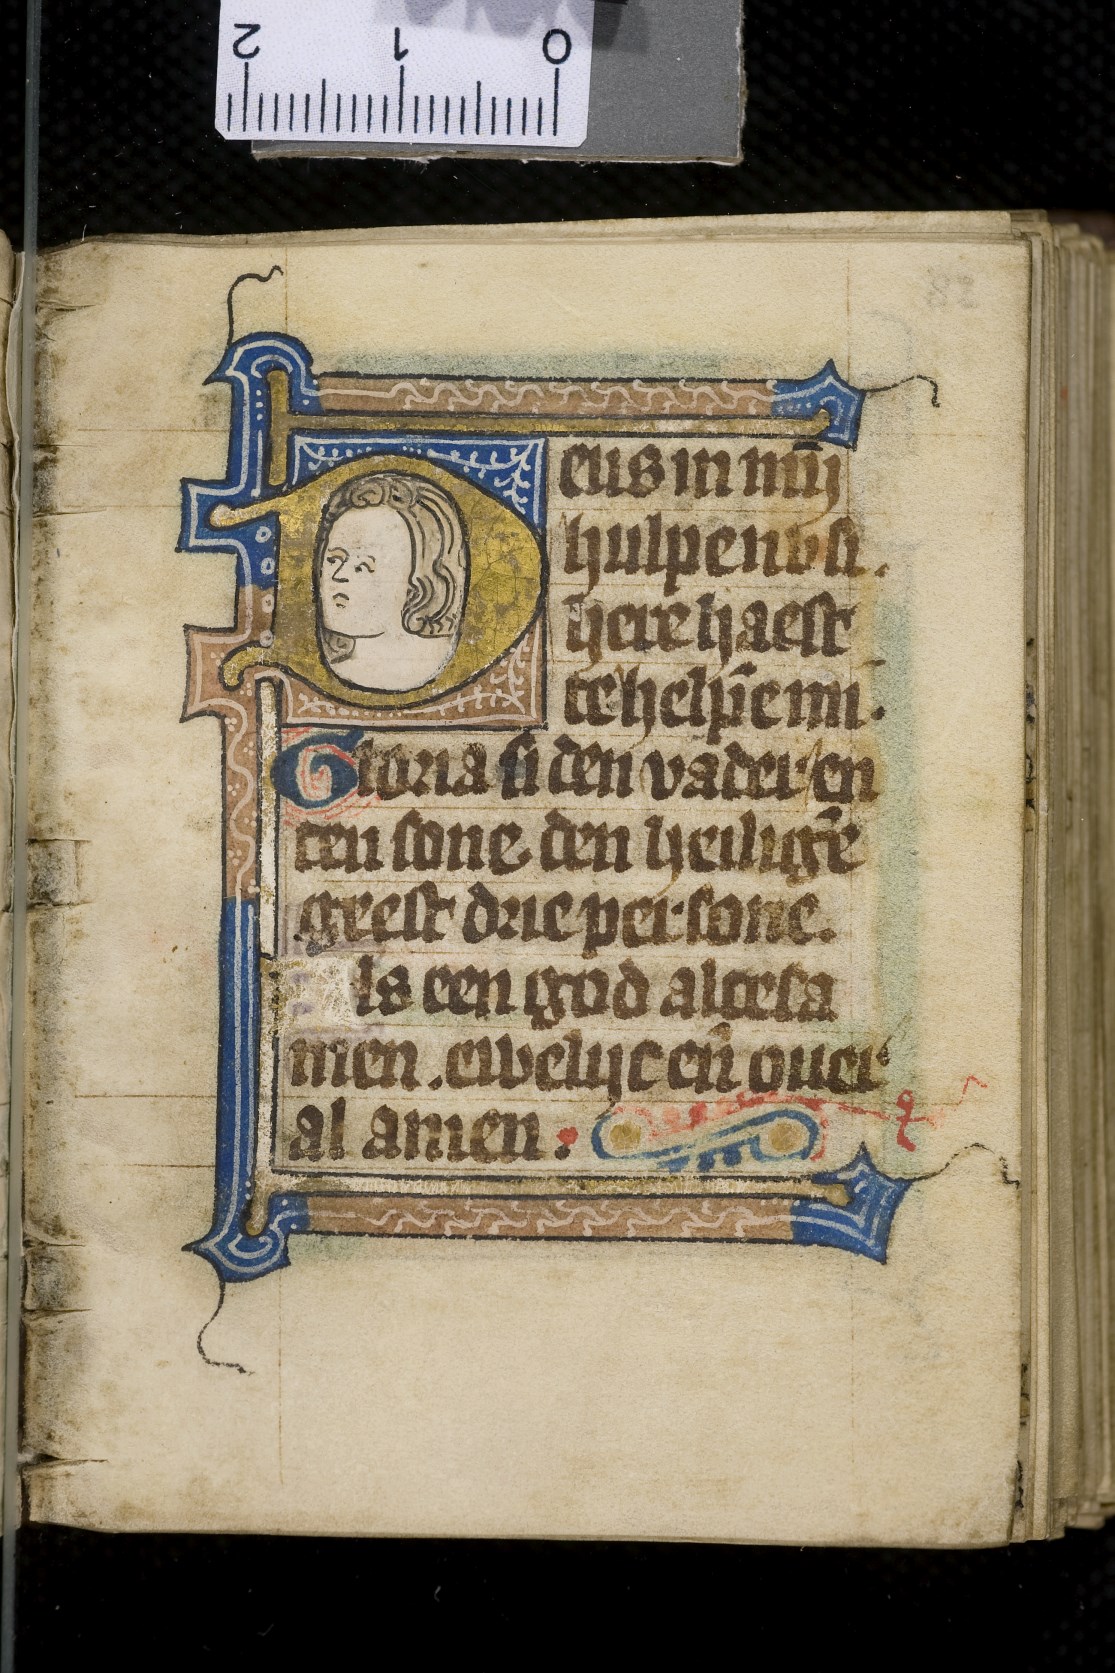 2 1 0
38
Deus in mīj
hulpen vsi.
here haest
te helpēe mi.
Gloria si den vader en
ten sone den heiligē
geest drie persone.
Als een god altesa
men. ewelijc en̄ ouer
al amen.